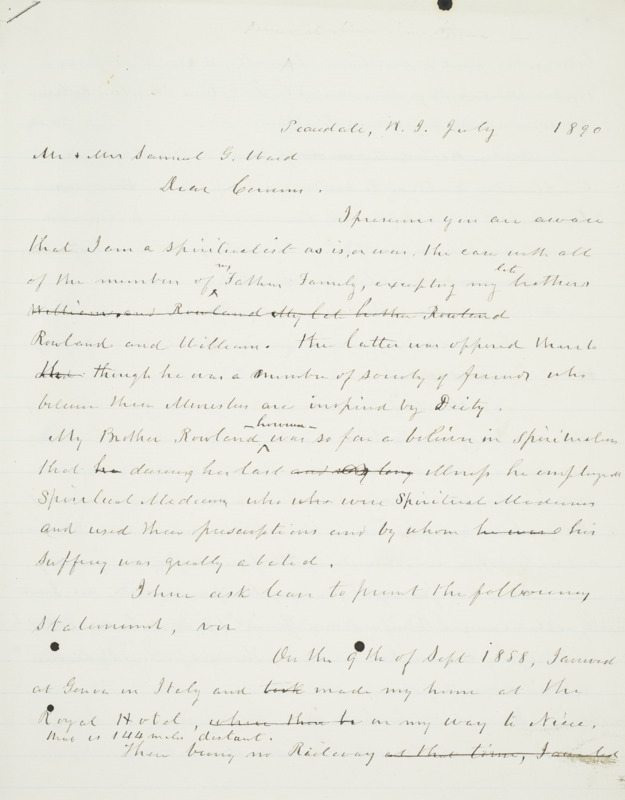 Peacedale, R. I. July 1890
Mr & Mrs Samuel G. Ward
Dear Cousins.
I presume you are aware
that I am a spiritualist as is, or was the case with all
of the members of my Father Family, excepting my late brothers
Williams, and Rowland My late brother Rowland
Rowland and William. The latter was opposed
the though he was a member of society of friends who
believe their Ministers are inspired by Deity.
My Brother Rowland - however - was so far a believer in Spiritualism
that he during his last and long illness he employed
Spiritual Mediums who who were Spiritual Mediums
and used their prescriptions and by whom he was his
suffering was greatly abated.
I here ask leave to present the following
Statement, viz
On the 9th of Sept 1858, I arrived
at Genoa in Italy and took made my home at the
Royal Hotel, where there be on my way to Nice,
that is 144 miles distant.
There being no Railway at that time, I